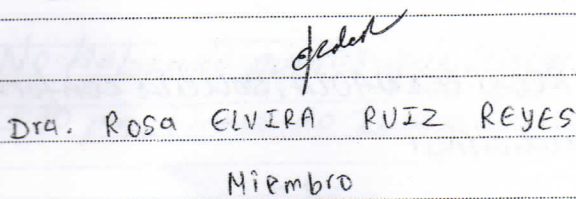 Dra. ROSA ELVIRA RUIZ REYES
Miembro